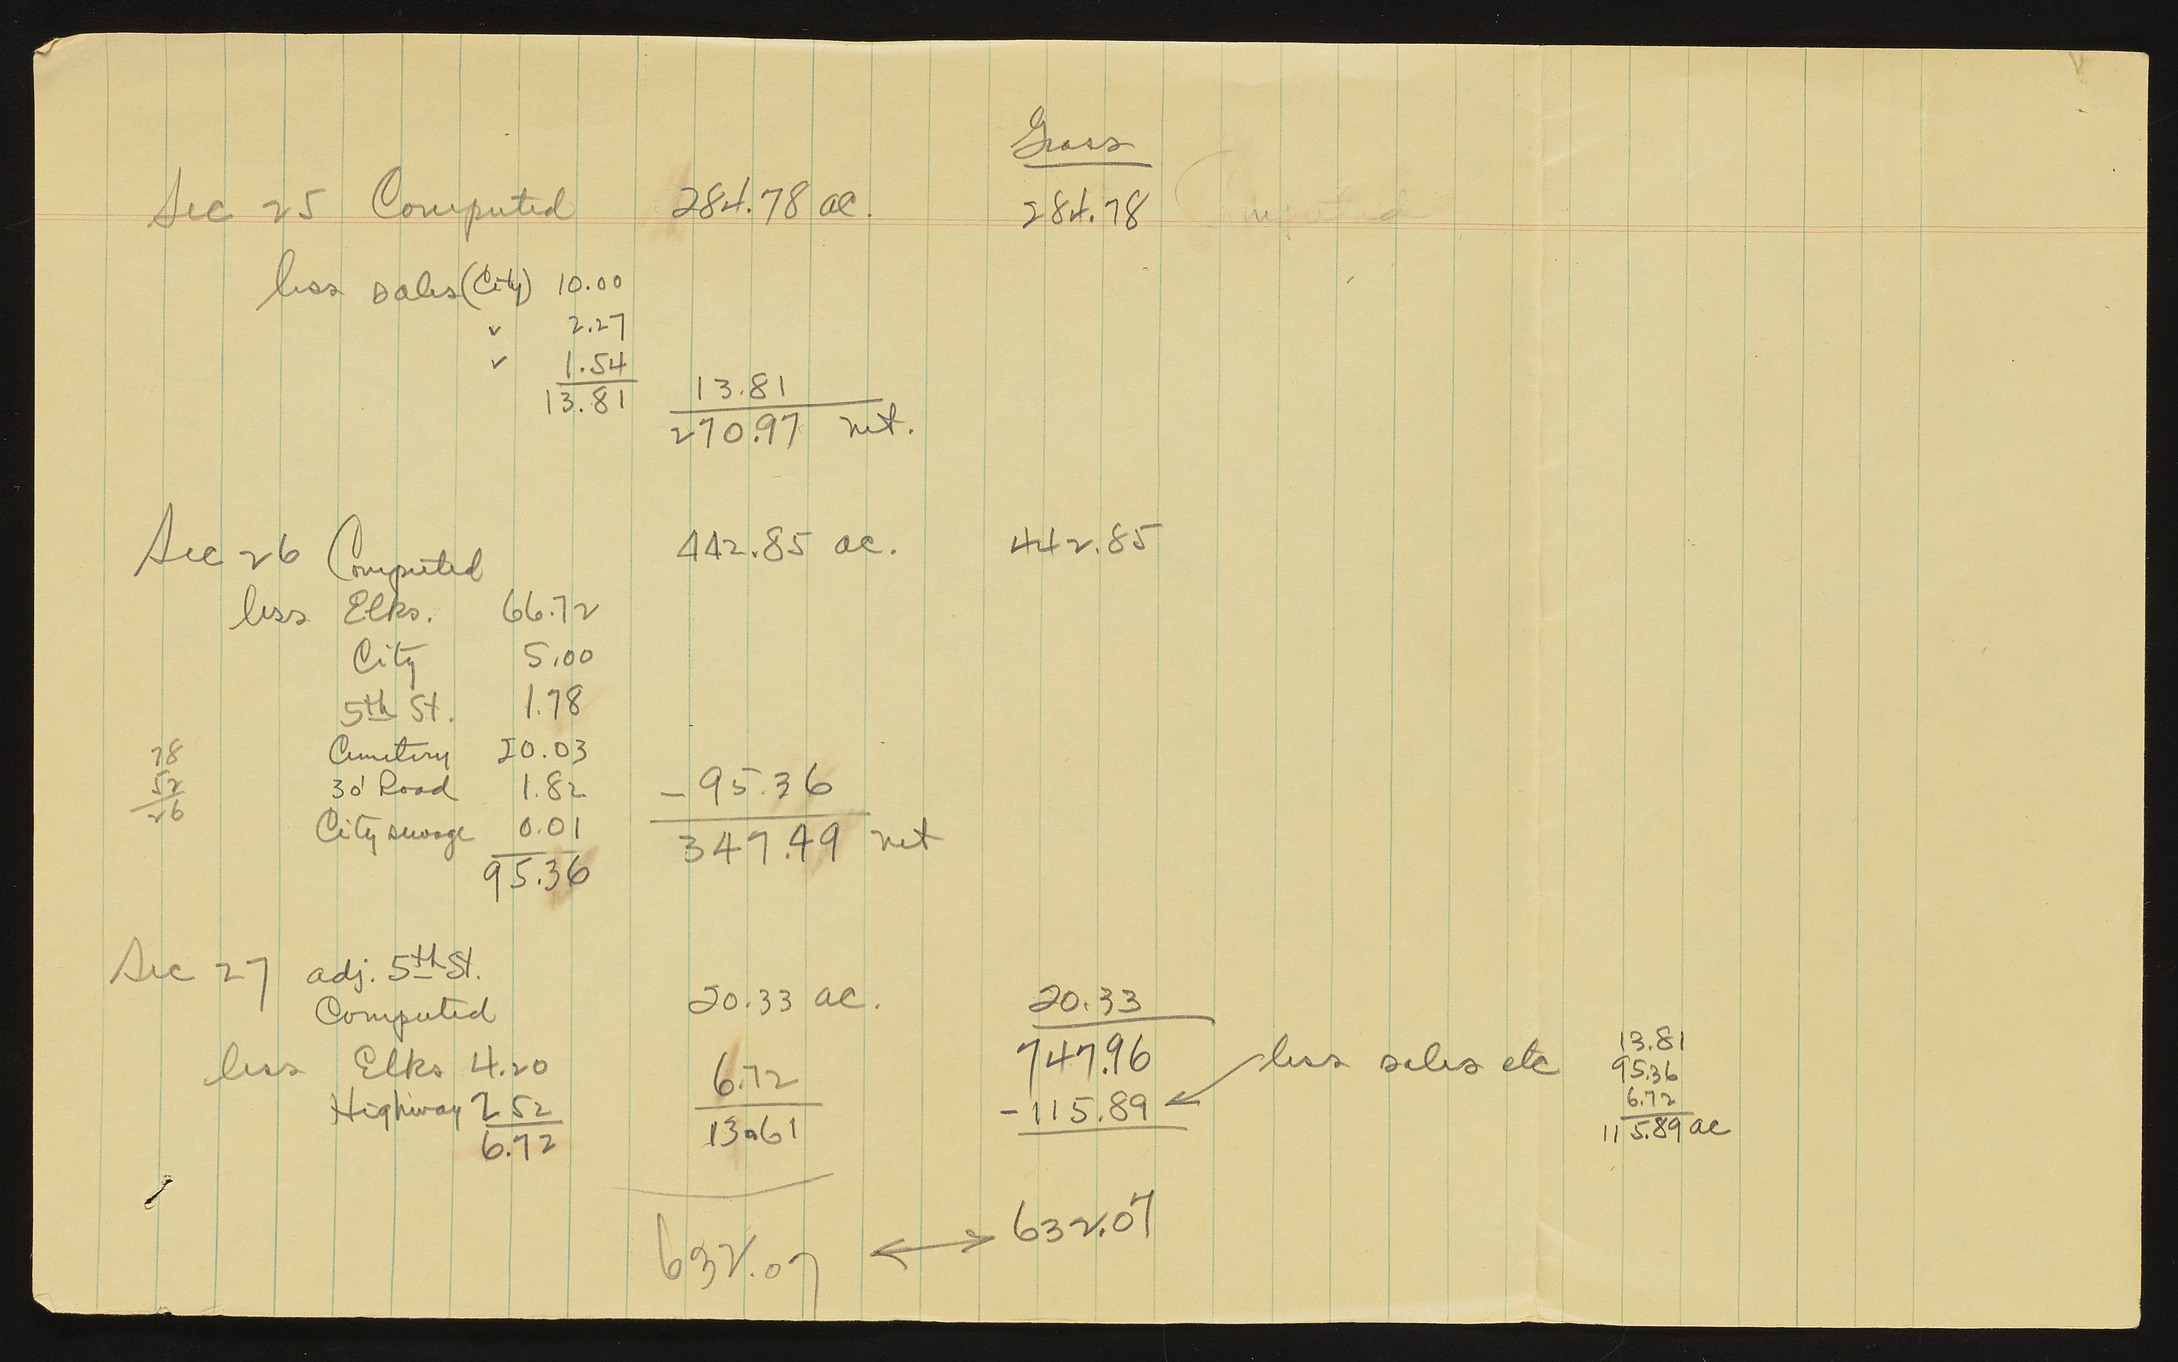 Gross
Sec 25 Computed 284.78 ac. 284.78 Computed
less sales (City) 10.00
" 2.27
" 1.54
13.81 13.81
270.97 net.
Sec 26 Computed 442.85 ac. 442.85
less Elks. 66.72
City 5.00
5th St. 1.78
78 Cemetery 20.03
52 30' Road 1.82 - 95.36
26 City sewage 0.01 347.49 net
95.36
Sec 27 adj. 5th St.
Computed 20.33 ac. 20.33
less Elks 4.20 6.72 747.96 less sales etc 13.81
95.36
Highway 2.52 13.61 - 115.89 6.72
6.72 115.89 ac
632.07 632.07